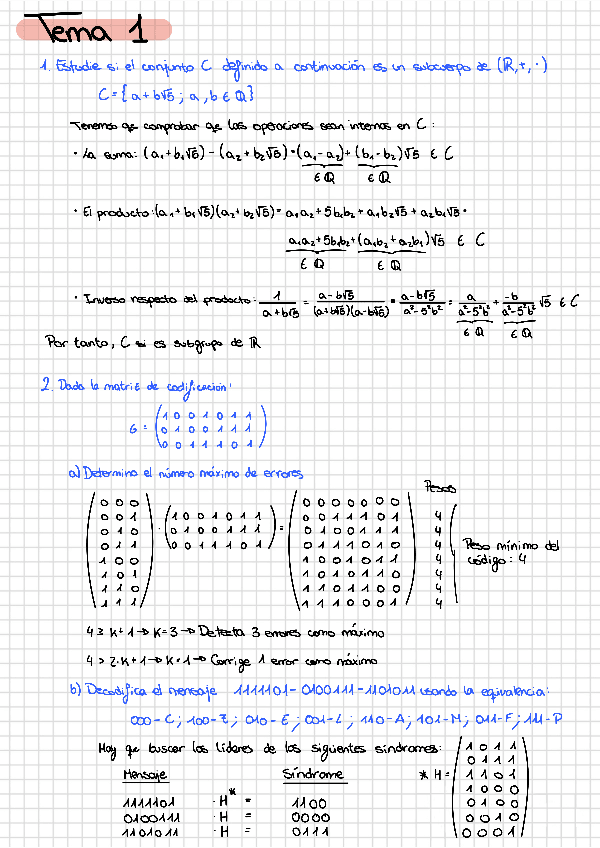 Tema 1
1. Estudie si el conjunto C definido a continuación es un subcuerpo de (ℝ, +, ·)
C = { a + b√5 ; a, b ∈ ℚ }
Tenemos que comprobar que las operaciones sean internas en C :
· La suma: (a₁ + b₁√5) - (a₂ + b₂√5) = (a₁ - a₂) + (b₁ - b₂)√5 ∈ C
∈ ℚ ∈ ℚ
· El producto: (a₁ + b₁√5)(a₂ + b₂√5) = a₁a₂ + 5b₁b₂ + a₁b₂√5 + a₂b₁√5 =
a₁a₂ + 5b₁b₂ + (a₁b₂ + a₂b₁)√5 ∈ C
∈ ℚ ∈ ℚ
· Inverso respecto del producto: 1/(a + b√5) = (a - b√5)/((a + b√5)(a - b√5)) = (a - b√5)/(a² - 5²b²) = a/(a² - 5²b²) + -b/(a² - 5²b²) √5 ∈ C
∈ ℚ ∈ ℚ
Por tanto, C si es subgrupo de ℝ
2. Dada la matriz de codificación:
1 0 0 1 0 1 1
G = 0 1 0 0 1 1 1
0 0 1 1 1 0 1
a) Determina el número máximo de errores
Pesos
0 0 0 0 0 0 0 0 0 0
0 0 1 0 0 1 1 1 0 1 4
0 1 0 · 1 0 0 1 0 1 1 = 0 1 0 0 1 1 1 4
0 1 1 0 1 0 0 1 1 1 0 1 1 1 0 1 0 4 Peso mínimo del
1 0 0 0 0 1 1 1 0 1 1 0 0 1 0 1 1 4 código: 4
1 0 1 1 0 1 0 1 1 0 4
1 1 0 1 1 0 1 1 0 0 4
1 1 1 1 1 1 0 0 0 1 4
4 ≥ K + 1 → K = 3 → Detecta 3 errores como máximo
4 > 2·K + 1 → K = 1 → Corrige 1 error como máximo
b) Decodifica el mensaje 1111101 - 0100111 - 1101011 usando la equivalencia:
000 - C ; 100 - Z ; 010 - E ; 001 - L ; 110 - A ; 101 - M ; 011 - F ; 111 - P
Hay que buscar los líderes de los siguientes síndromes:
Mensaje Síndrome
1111101 · H* = 1100
0100111 · H = 0000
1101011 · H = 0111
* H =
1 0 1 1
0 1 1 1
1 1 0 1
1 0 0 0
0 1 0 0
0 0 1 0
0 0 0 1